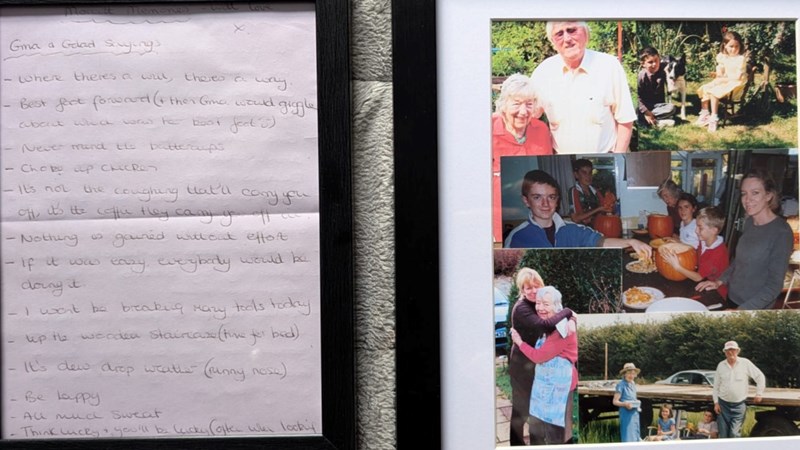 Gma & Gdad Sayings
- Where theres a will, theres a way.
- Best foot forward (& then Gma would giggle
about which was her best foot :))
- Never mind the buttercups
- Chop up chicken
- It's not the coughing that'll carry you
off, it's the coffin they carry you off in
- Nothing is gained without effort
- If it was easy everybody would be
doing it
- I wont be breaking many tools today
- Up the wooden staircase (time for bed)
- It's dew drop weather (runny nose)
- Be happy
- All much sweat
- Think lucky & you'll be lucky (often when looking